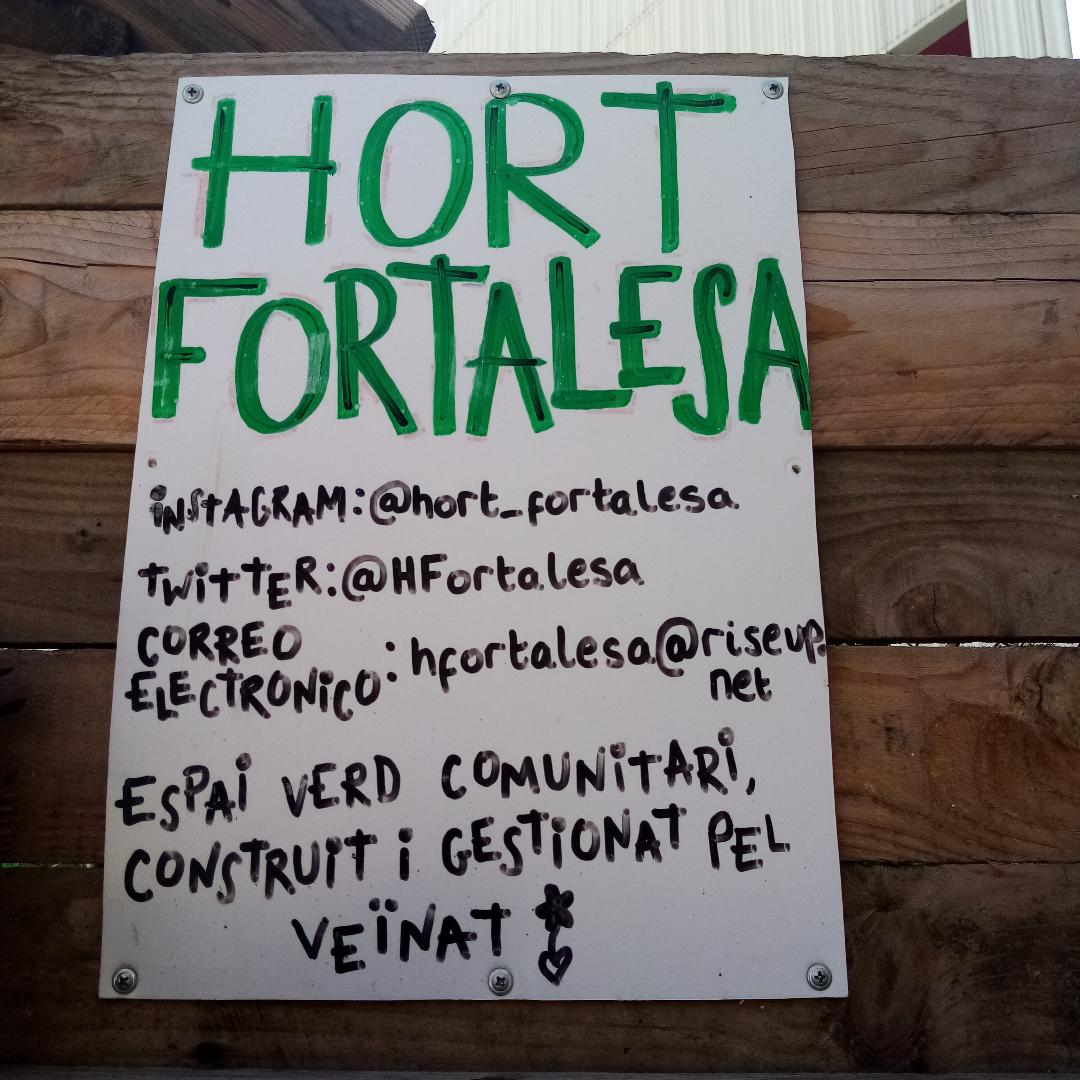 HORT
FORTALESA
iNSTAGRAM: @hort_fortalesa
TWiTTER: @HFortalesa
CORREO
ELECTRONiCO: hfortalesa@riseup.
net
ESPAi VERD COMUNiTARi,
CONSTRUiT i GESTiONAT PEL
VEÏNAT